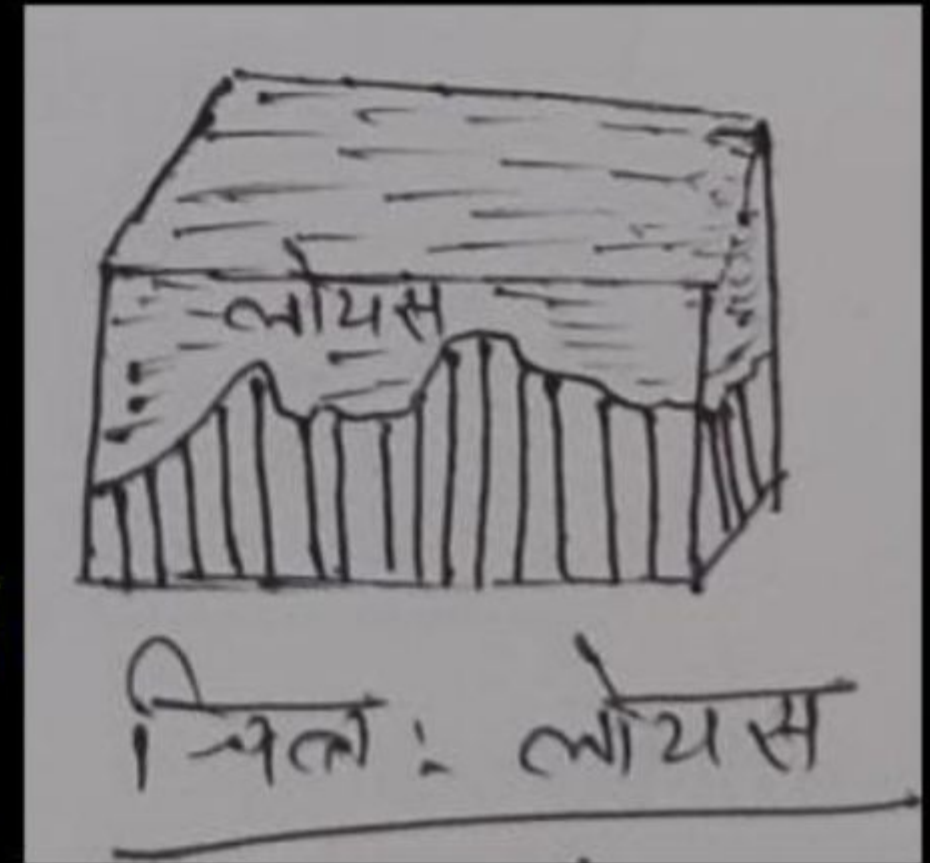 लोयस
चित्र : लोयस